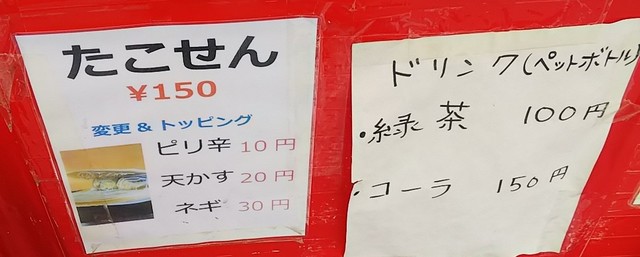 たこせん
¥150
変更 & トッピング
ピリ辛 10円
天かす 20円
ネギ 30円
ドリンク(ペットボトル)
・緑茶 100円
・コーラ 150円